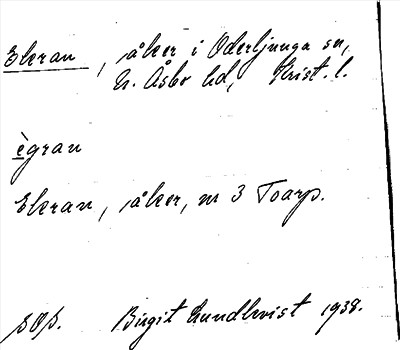 Ekran, åker i Oderljunga sn,
N. Åsbo hd, Krist. l.
ègran
Ekran, åker, nr 3 Toarp.
Birgit Lundkvist 1938.